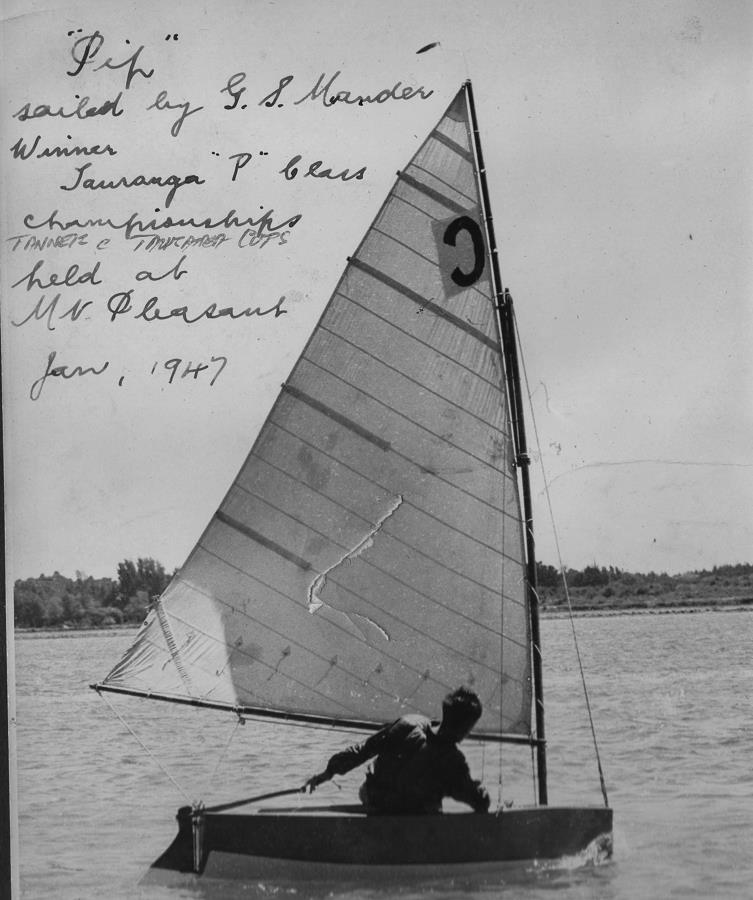 "Pip"
sailed by G. S. Mander
Winner
Tauranga "P" Class
championships
TANNER & TAURANGA CUPS
held at
Mt. Pleasant
Jan, 1947
C